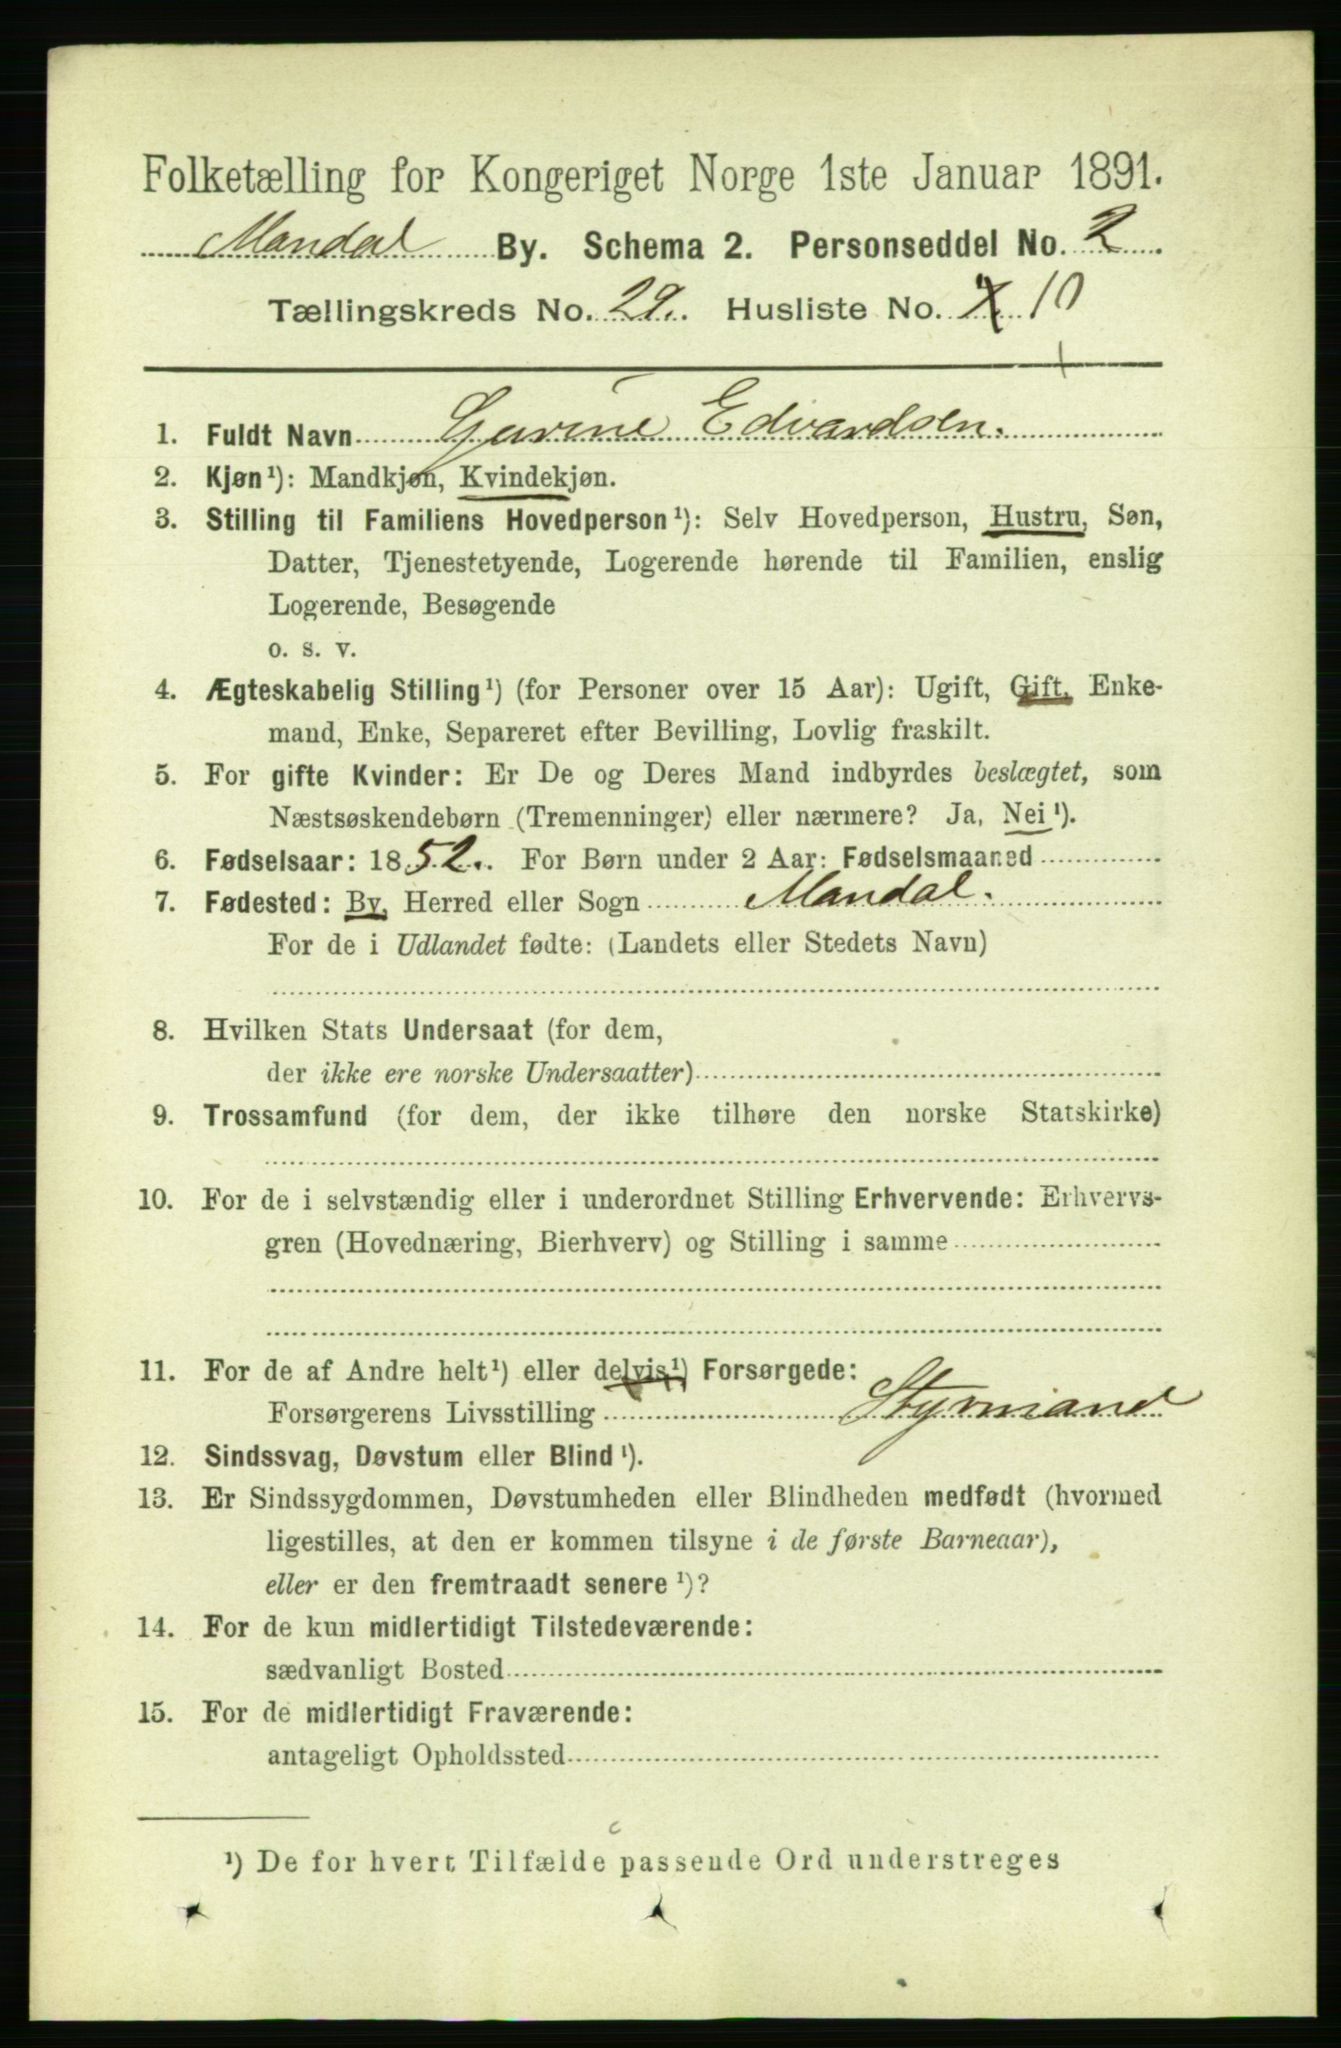 Folketælling for Kongeriget Norge 1ste Januar 1891.
Mandal By. Schema 2. Personseddel No. 2.
Tællingskreds No. 29. Husliste No. 10
1. Fuldt Navn Gurine Edvardsen.
2. Kjøn¹): Mandkjøn, Kvindekjøn.
3. Stilling til Familiens Hovedperson¹): Selv Hovedperson, Hustru, Søn,
Datter, Tjenestetyende, Logerende hørende til Familien, enslig
Logerende, Besøgende
o. s. v.
4. Ægteskabelig Stilling¹) (for Personer over 15 Aar): Ugift, Gift, Enke-
mand, Enke, Separeret efter Bevilling, Lovlig fraskilt.
5. For gifte Kvinder: Er De og Deres Mand indbyrdes beslægtet, som
Næstsøskendebørn (Tremenninger) eller nærmere? Ja, Nei¹).
6. Fødselsaar: 1852. For Børn under 2 Aar: Fødselsmaaned
7. Fødested: By, Herred eller Sogn Mandal.
For de i Udlandet fødte: (Landets eller Stedets Navn)
8. Hvilken Stats Undersaat (for dem,
der ikke ere norske Undersaatter)
9. Trossamfund (for dem, der ikke tilhøre den norske Statskirke)
10. For de i selvstændig eller i underordnet Stilling Erhvervende: Erhvervs-
gren (Hovednæring, Bierhverv) og Stilling i samme
11. For de af Andre helt¹) eller delvis¹) Forsørgede:
Forsørgerens Livsstilling Styrmand
12. Sindssvag, Døvstum eller Blind¹).
13. Er Sindssygdommen, Døvstumheden eller Blindheden medfødt (hvormed
ligestilles, at den er kommen tilsyne i de første Barneaar),
eller er den fremtraadt senere¹)?
14. For de kun midlertidigt Tilstedeværende:
sædvanligt Bosted
15. For de midlertidigt Fraværende:
antageligt Opholdssted
¹) De for hvert Tilfælde passende Ord understreges